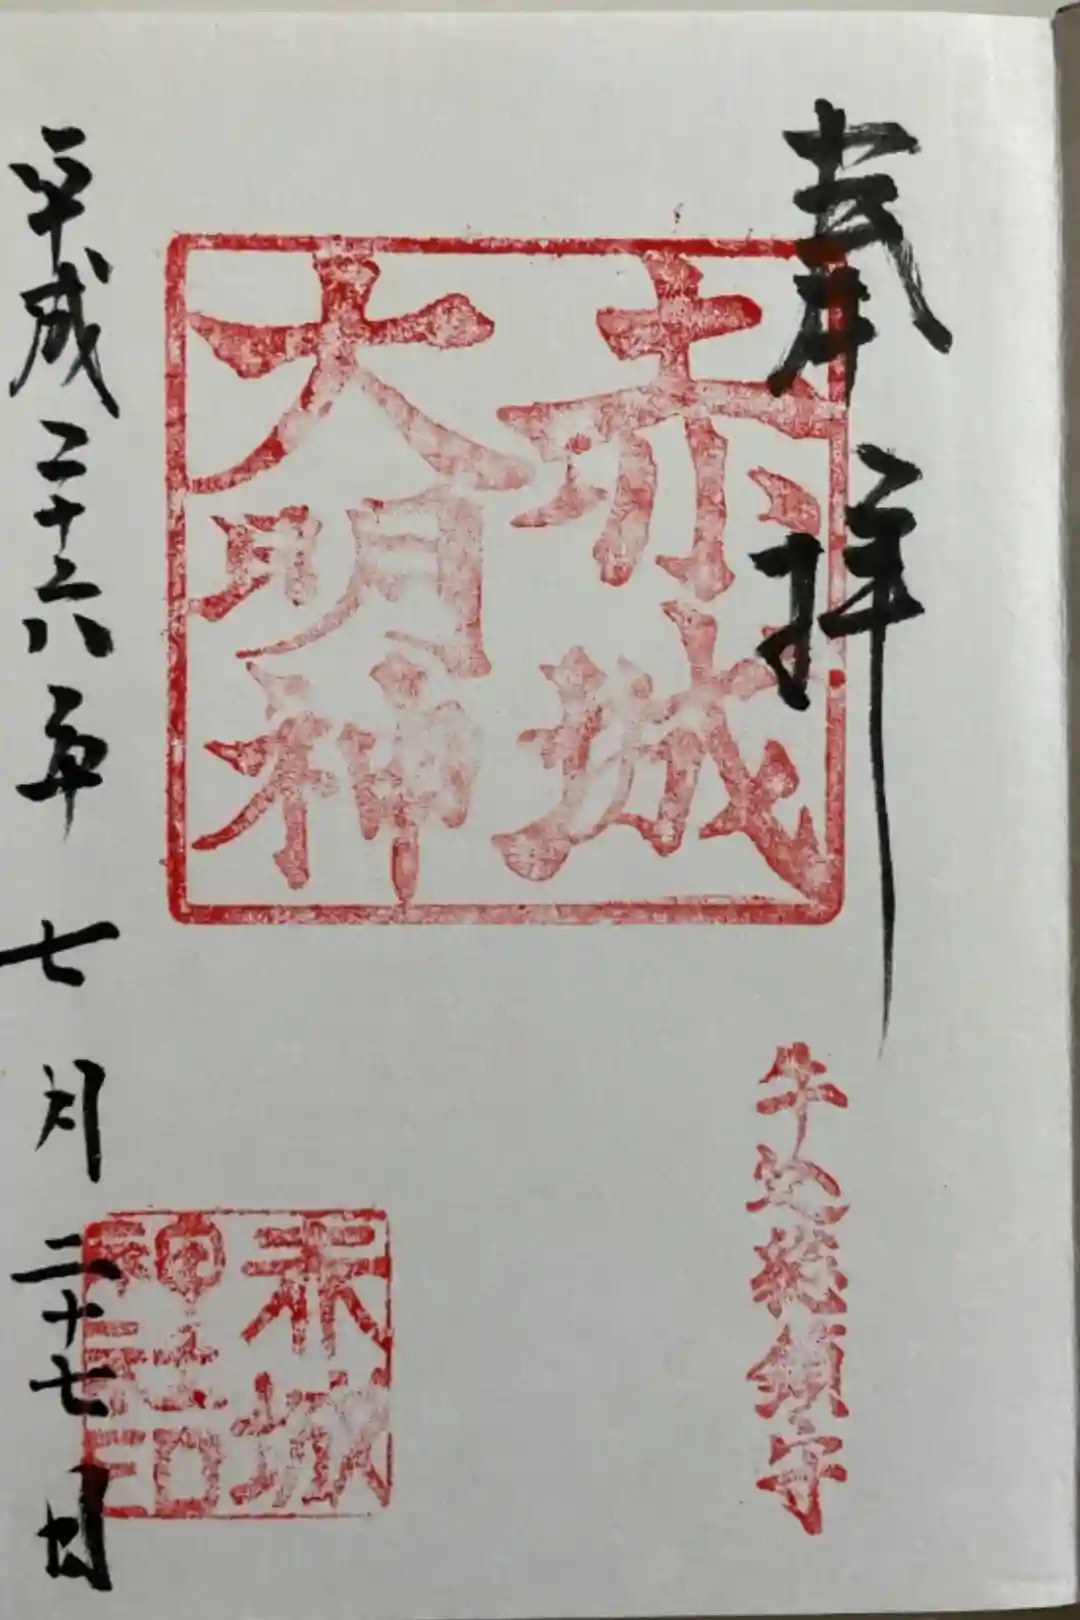 奉拝
赤城
大明神
牛込総鎮守
赤城
神社印
平成二十六年七月二十七日